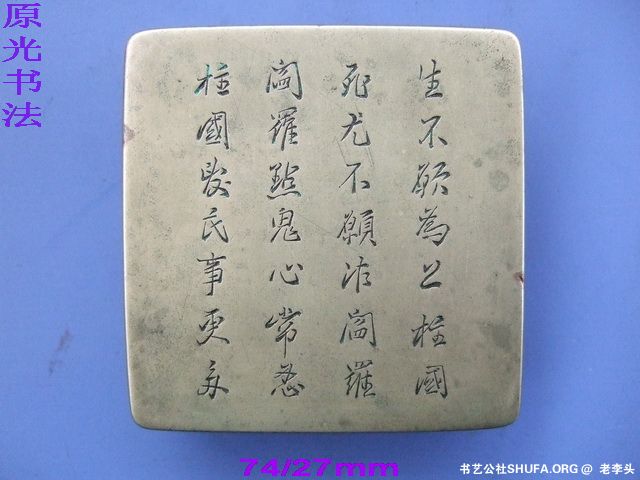 原光书法
生不願為上柱國
死尤不願作閻羅
閻羅點鬼心常忍
柱國憂民事更多
74/27mm
书艺公社SHUFA.ORG @ 老李头